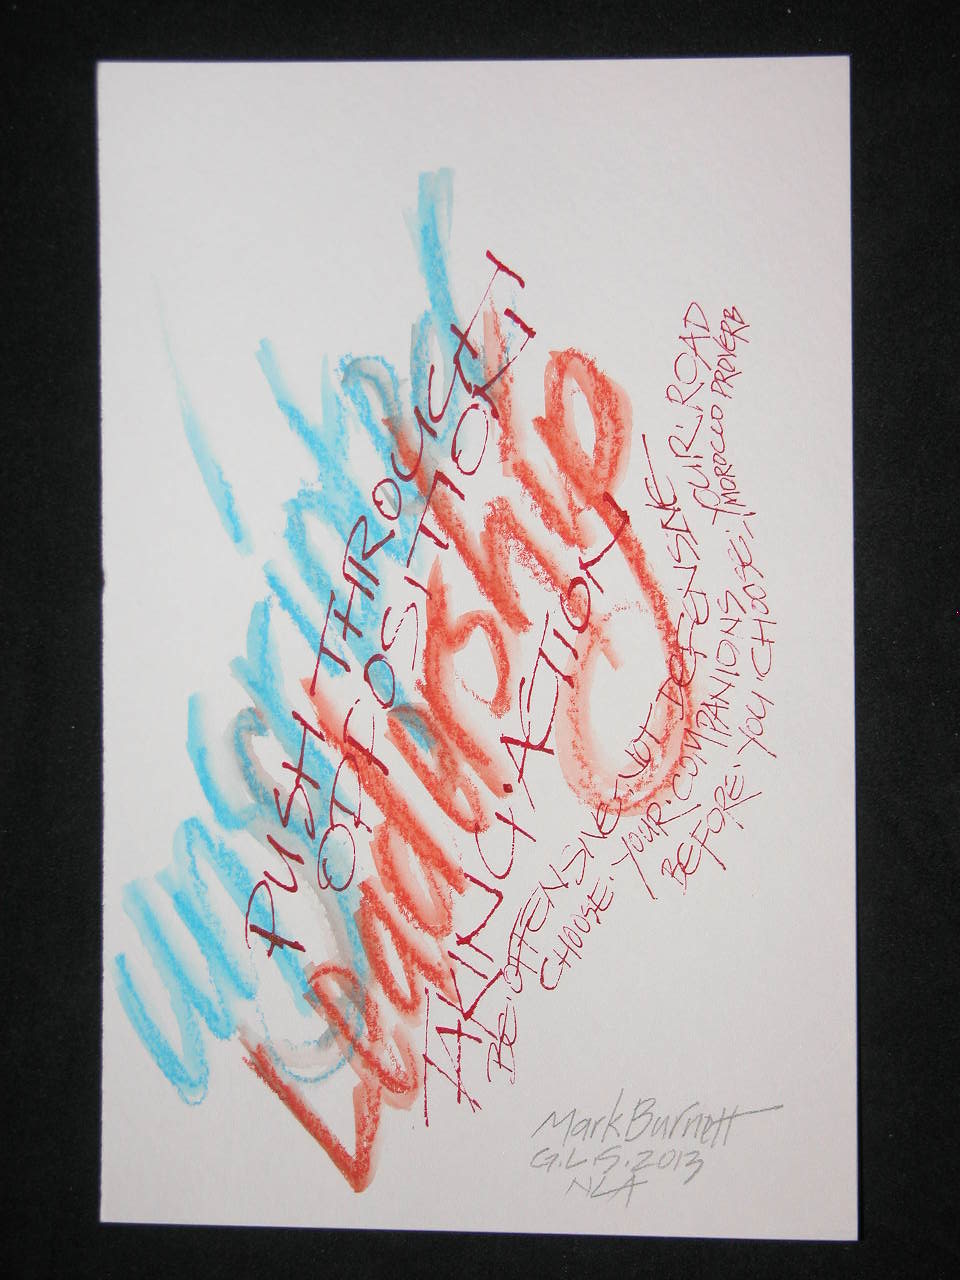 Leadership
PUSH THROUGH
OPPOSITION
TAKING.ACTION
BE.OFFENSIVE.NOT DEFENSIVE
CHOOSE.YOUR.COMPANIONS
BEFORE.YOU.CHOOSE.YOUR.ROAD
MOROCCO PROVERB
Mark Burnett
G.L.S. 2013
NLA